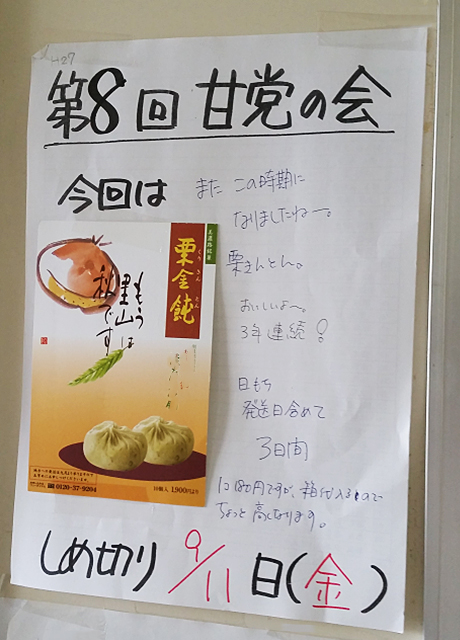 H27
第8回 甘党の会
今回は
また この時期に
なりましたねー。
栗きんとん。
おいしいよ〜。
3年連続!
日もち
発送日含めて
3日間
1コ180円ですが、箱代入るので
ちょっと高くなります。
栗金飩
くりきんとん
もう
里山は
秋です
0120-37-9204
10個入 1,900円
しめ切り 9/11日(金)